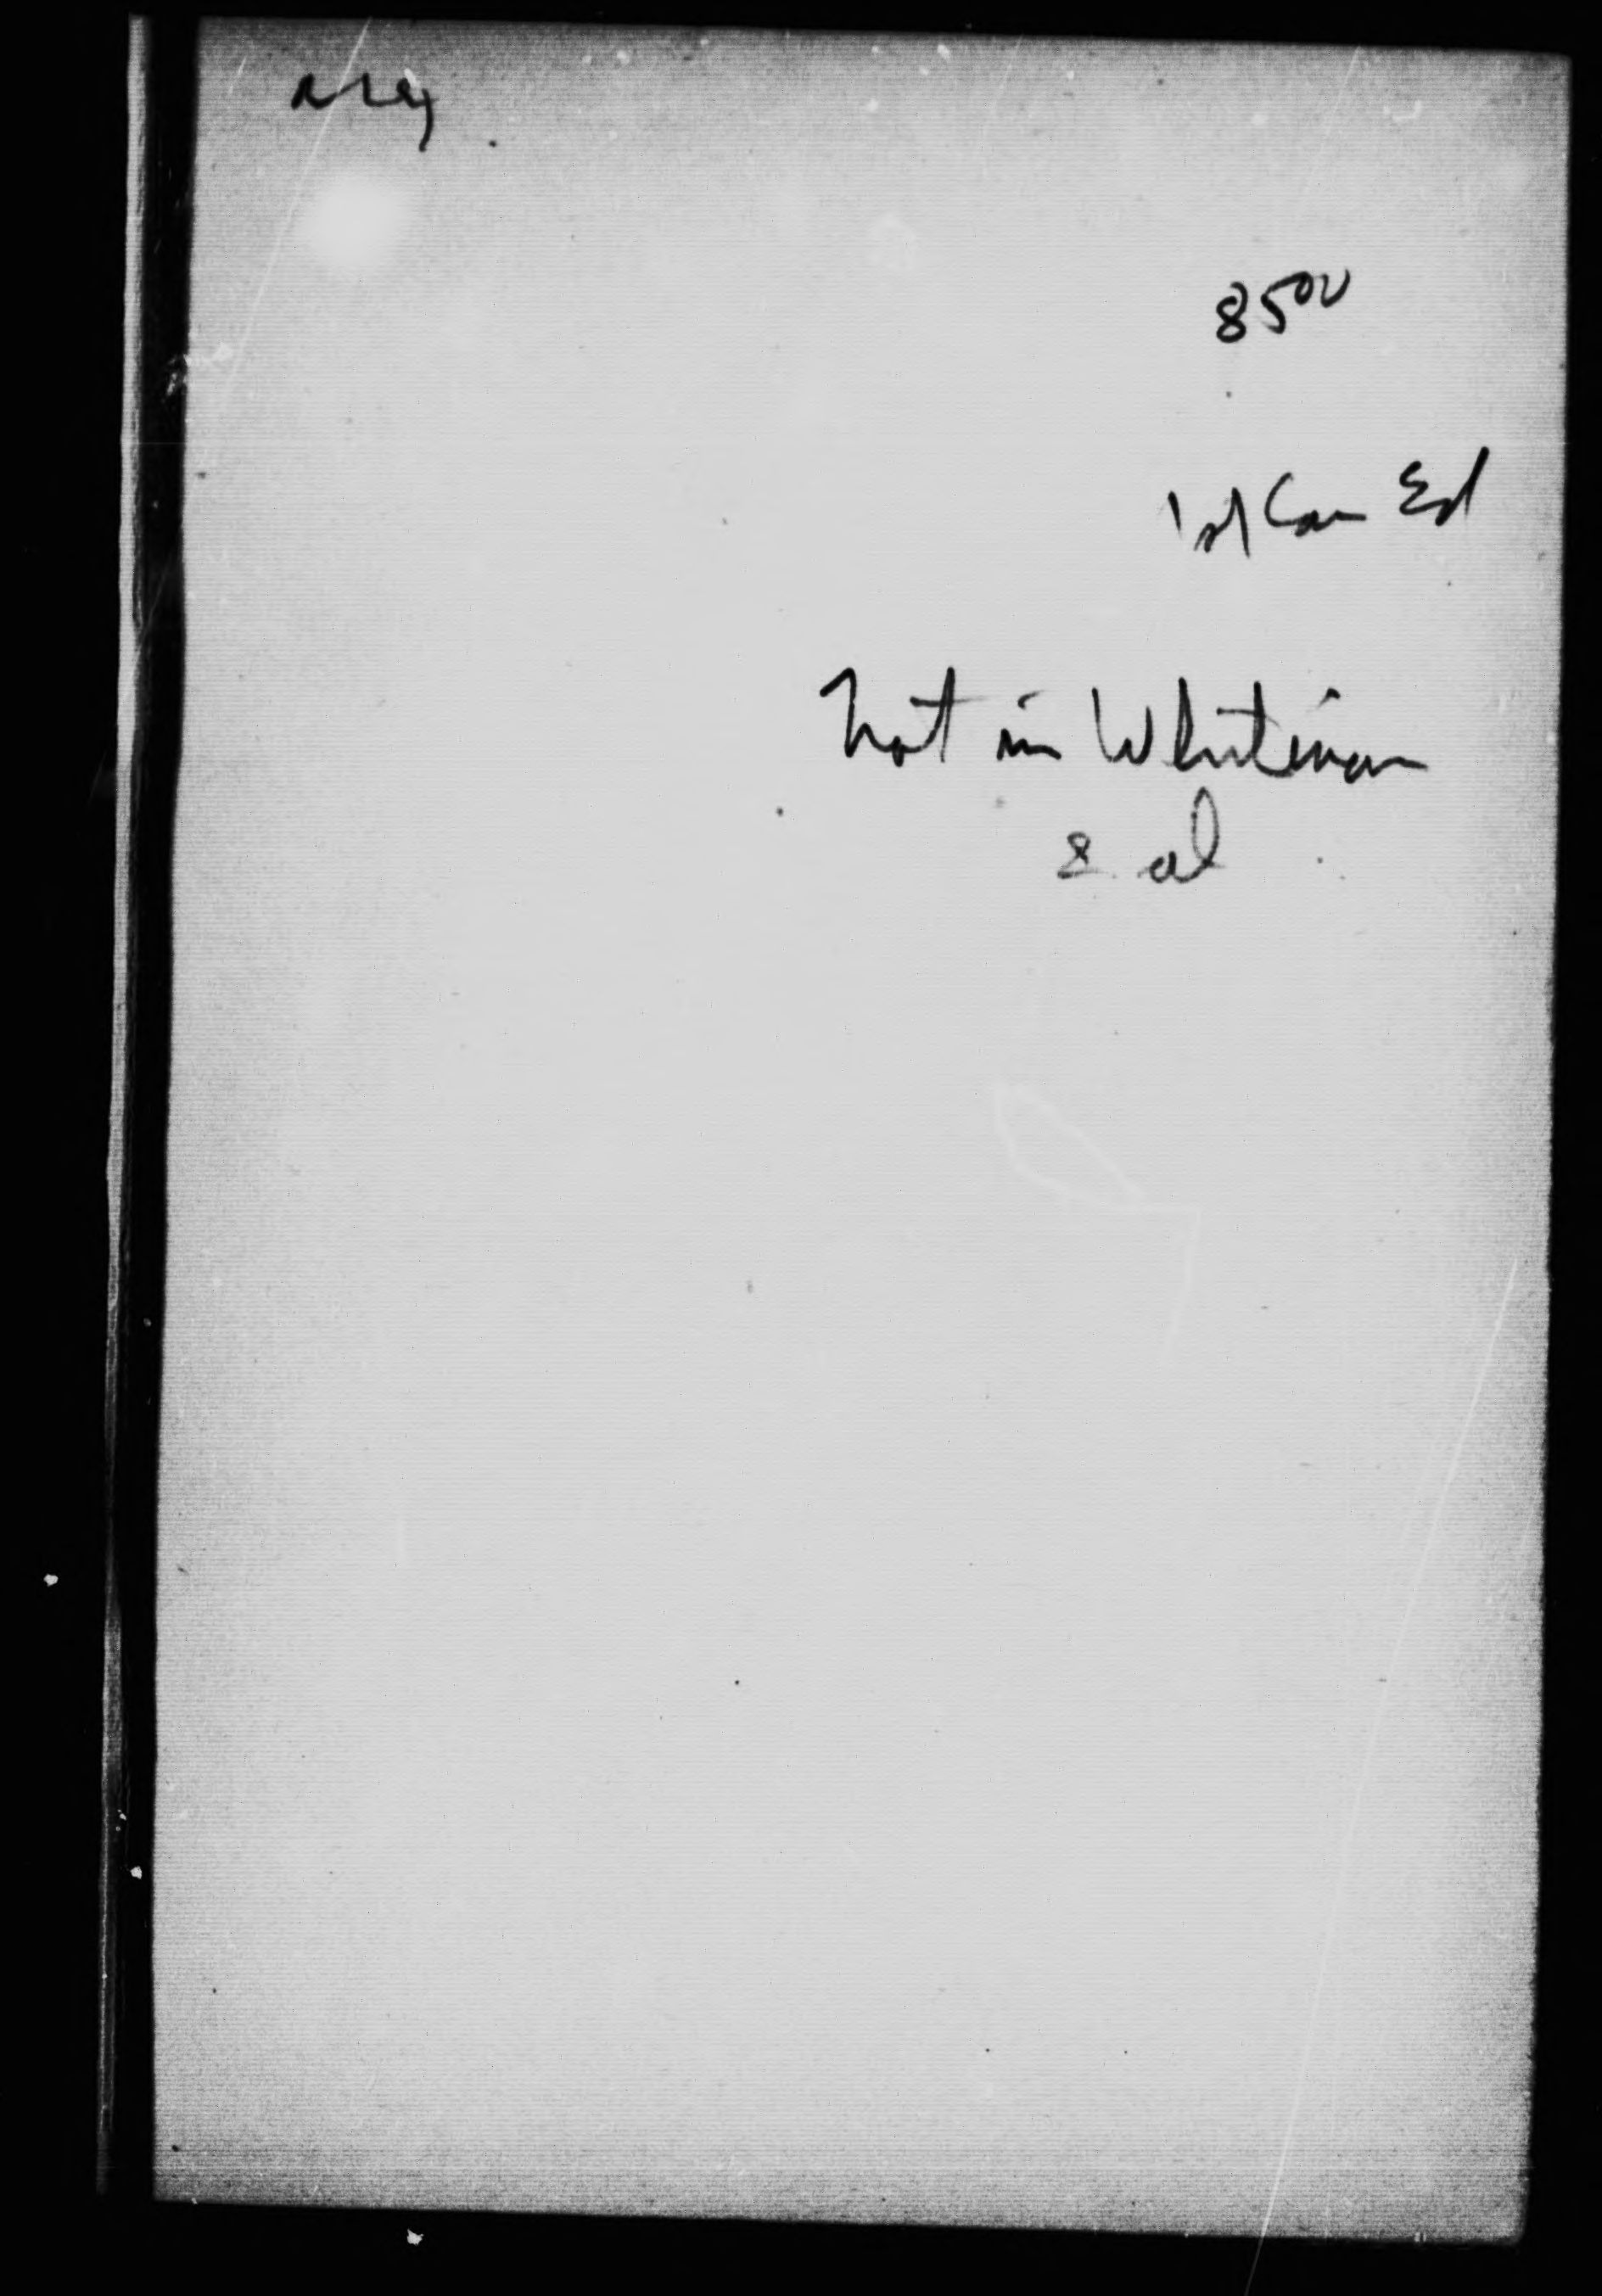 8500
1st Can Ed
Not in Whiteman
& al